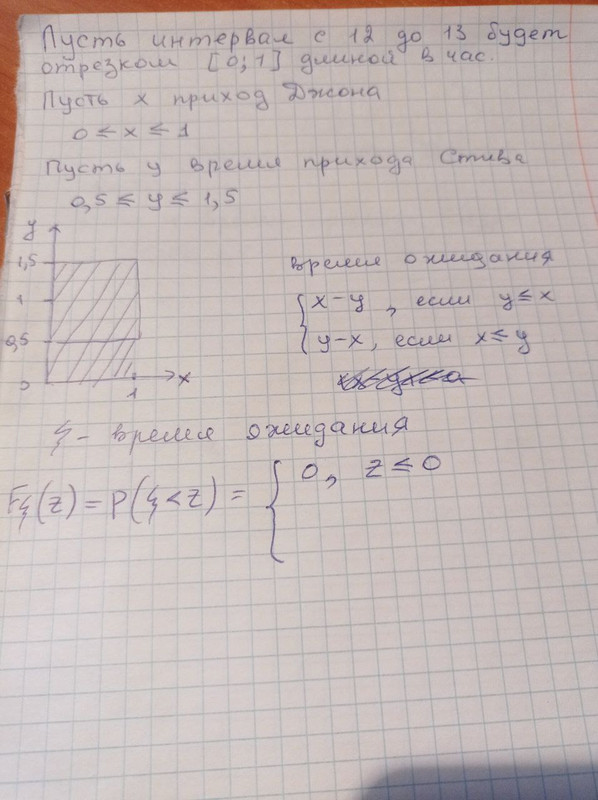 Пусть интервал с 12 до 13 будет
отрезком [0;1] длиной в час.
Пусть x приход Джона
0 ≤ x ≤ 1
Пусть y время прихода Стива
0,5 ≤ y ≤ 1,5
y
1,5
1
0,5
0
1
x
время ожидания
{ x-y, если y ≤ x
y-x, если x ≤ y
ξ - время ожидания
Fξ(z) = P(ξ < z) = { 0, z ≤ 0